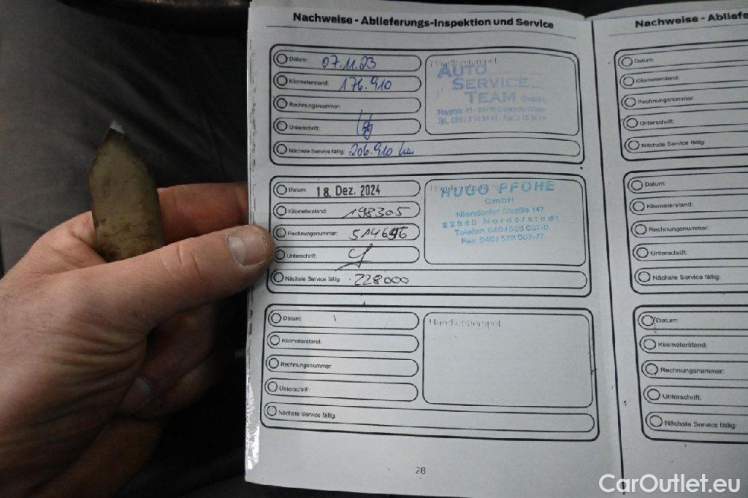 Nachweise - Ablieferungs-Inspektion und Service
Datum: 07.11.23
Kilometerstand: 176.910
Rechnungsnummer:
Unterschrift:
Nächste Service fällig: 206.910 km
AUTO
SERVICE
TEAM
Datum: 18. Dez. 2024
Kilometerstand: 198305
Rechnungsnummer:
Unterschrift:
Nächste Service fällig: 228000
HUGO PFOHE
GmbH
Norderstedt
Datum:
Kilometerstand:
Rechnungsnummer:
Unterschrift:
Nächste Service fällig:
Händlerstempel
28
Nachweise - Ablief
Datum:
Kilometerstand:
Rechnungsnummer:
Unterschrift:
Nächste Service fällig:
Datum:
Kilometerstand:
Rechnungsnummer:
Unterschrift:
Nächste Service fällig:
Datum:
Kilometerstand:
Rechnungsnummer:
Unterschrift:
Nächste Service fällig:
CarOutlet.eu